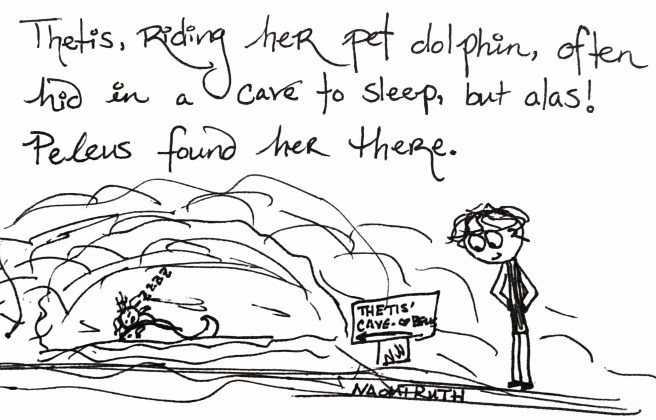 Thetis, Riding her pet dolphin, often
hid in a cave to sleep, but alas!
Peleus found her there.
zzzz
THETIS'
CAVE.
NAOMI RUTH